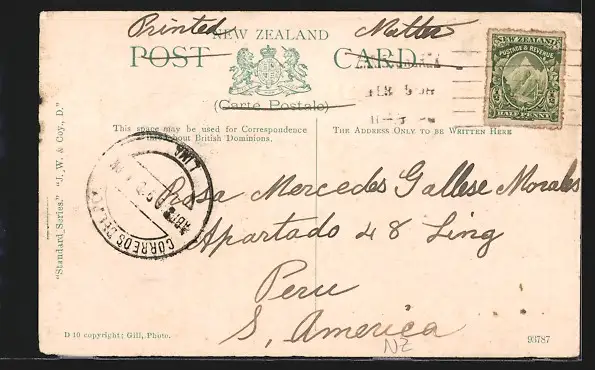 Printed Matter
NEW ZEALAND
POST CARD
(Carte Postale)
NEW ZEALAND
POSTAGE & REVENUE
HALF PENNY
This space may be used for Correspondence
THE ADDRESS ONLY TO BE WRITTEN HERE
British Dominions.
LIMA
CORREOS DEL
Rosa Mercedes Gallese Morales
Apartado 48 Ling
Peru
S. America
NZ
"Standard Series." "J. W. & Coy., D."
D 10 copyright; Gill, Photo.
93787